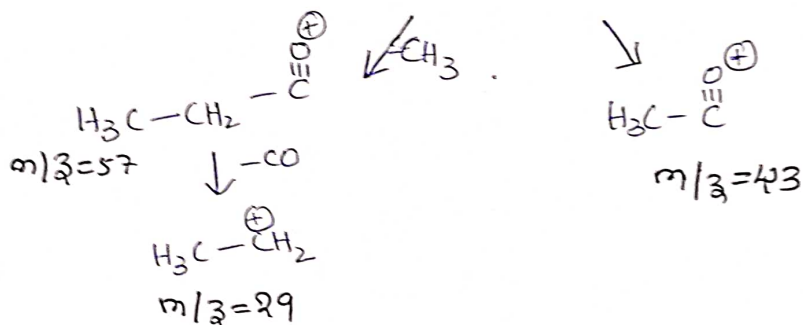 ⊕
O
-CH3 .
≡
H3C-CH2-C
m/z=57
↓ -CO
⊕
H3C-CH2
m/z=29
⊕
O
≡
H3C-C
m/z=43